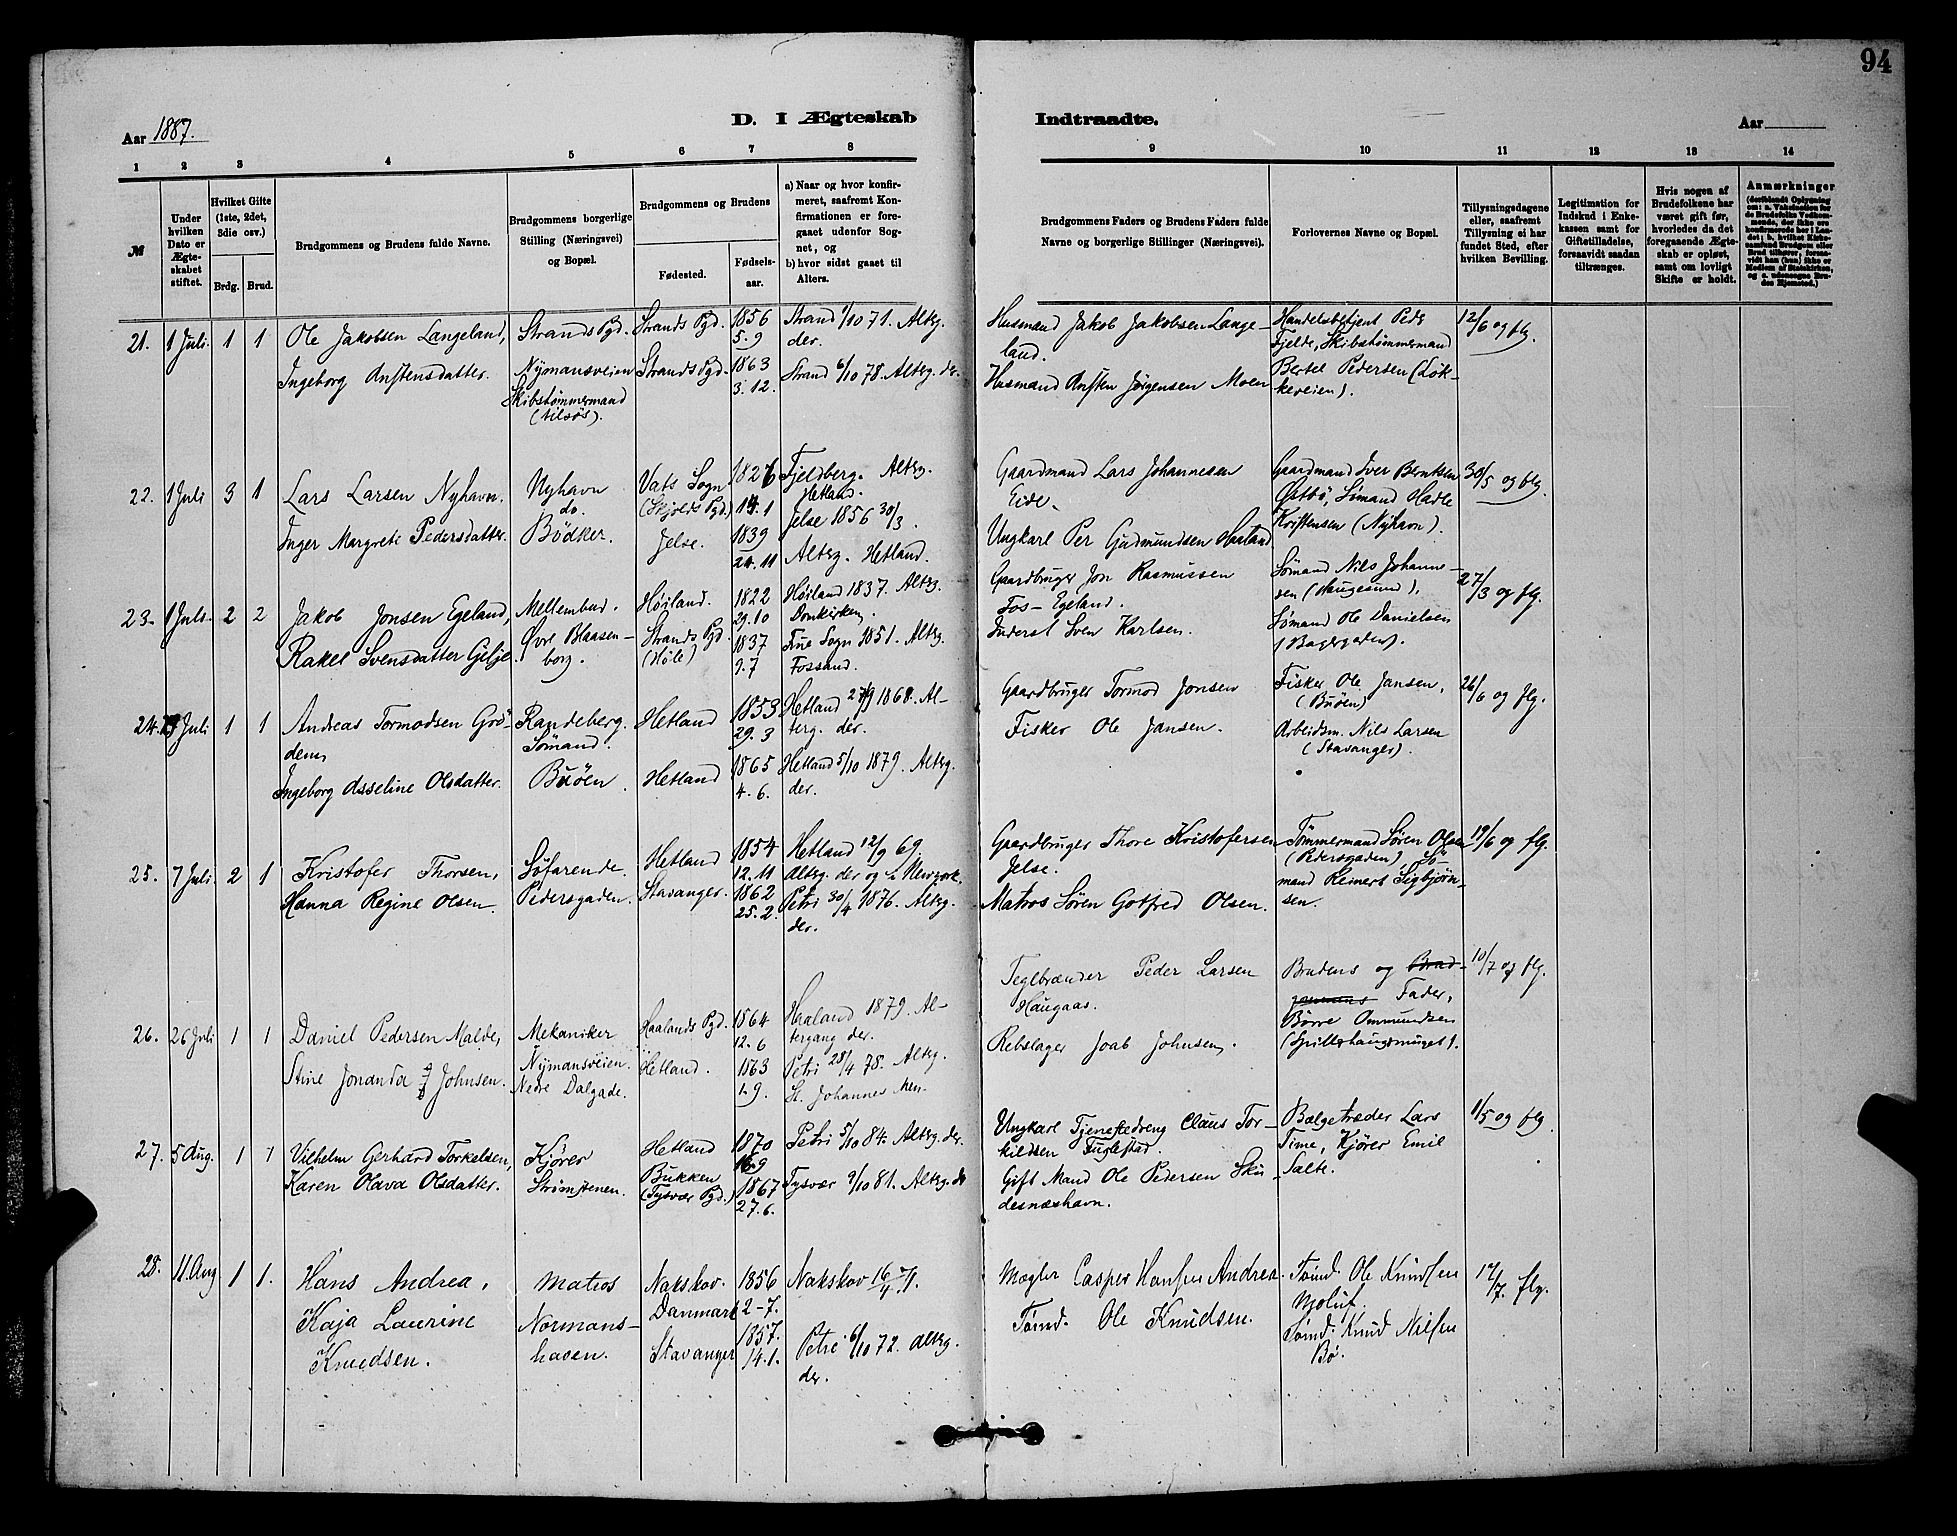 94
Aar 1887.
D. I Ægteskab
Indtraadte.
Aar
1 2 3 4 5 6 7 8 9 10 11 12 13 14
№
Under hvilken Dato er Ægteskabet stiftet.
Hvilket Gifte (1ste, 2det, 3die osv.)
Brdg. Brud.
Brudgommens og Brudens fulde Navne.
Brudgommens borgerlige Stilling (Næringsvei) og Bopæl.
Brudgommens og Brudens
Fødested.
Fødselsaar.
a) Naar og hvor konfirmeret, saafremt Konfirmationen er foregaaet udenfor Sognet, og
b) hvor sidst gaaet til Alters.
Brudgommens Faders og Brudens Faders fulde Navne og borgerlige Stillinger (Næringsvei).
Forlovernes Navne og Bopæl.
Tillysningsdagene eller, saafremt Tillysning ei har fundet Sted, efter hvilken Bevilling.
Legitimation for Indskud i Enkekassen samt for Giftetilladelse, forsaavidt saadan tiltrænges.
Hvis nogen af Brudefolkene har været gift før, hvorledes da det foregaaende Ægteskab er opløst, samt om lovligt Skifte er holdt.
Anmærkninger
21. 1 Juli. 1 1
Ole Jakobsen Langeland,
Ingeborg Anstensdatter.
Strands Pgd.
Nymansveien
Skibstømmermand
Strands Pgd.
Strands Pgd.
1856
5.9
1863
3.12.
Strand 1/10 71. Altrg.
der.
Strand 6/10 78. Altrg. der
Husmand Jakob Jakobsen Lange-
land.
Husmand Ansten Jørgensen Moen
Handelsbetjent Peder
Fjelde, Skibstømmermand
Bertel Pedersen (Løk-
keveien).
12/6 og flg.
22. 1 Juli 3 1
Lars Larsen Nyhavn.
Inger Margrete Pedersdatter.
Nyhavn
do.
Bödker.
Vats Sogn
(Skjolds Pgd.)
Jelse.
1826
14.1
1839
24.11
Fjeldberg. Altrg.
Hetland.
Jelse 1856 30/3.
Altrg. Hetland.
Gaardmand Lars Johannesen
Eide.
Ungkarl Per Gudmundsen Haaland
Gaardmand Iver Berntsen
Østbö, Sømand Hadle
Kristensen (Nyhavn).
30/5 og flg.
23. 1 Juli. 2 2
Jakob Jonsen Egeland,
Rakel Svensdatter Gilje
Mellembud.
Øvre Blaasen-
borg.
Høiland.
Strands Pgd
(Høle)
1822
29.10
1837
9.7
Høiland 1837. Altrg.
Domkirken.
Time Sogn 1851. Altrg.
Fossand.
Gaardbruger Jon Rasmussen
Fos-Egeland.
Inderst Sven Karlsen.
Sömand Nils Johanne-
sen (Haugesund),
Sømand Ole Danielsen
(Bagergaden).
27/3 og flg.
24. Juli 1 1
Andreas Tormodsen Grö-
dem,
Ingeborg Asseline Olsdatter.
Randeberg.
Sömand.
Buöen.
Hetland
Hetland
1853
29.3
1865
4.6.
Hetland 27/9 1868. Al-
terg. der.
Hetland 5/10 1879. Altrg.
der.
Gaardbruger Tormod Jonsen
Fisker Ole Jansen.
Fisker Ole Jansen,
(Buöen)
Arbeidsm. Nils Larsen
(Stavanger).
26/6 og flg.
25. 7 Juli. 2 1
Kristofer Thorsen,
Hanna Regine Olsen.
Söfarende.
Pedersgaden.
Hetland
Stavanger.
1854
12.11
1862
25.2.
Hetland 12/9 69.
Altrg. der og i Newyork.
Petri 30/4 1876. Altrg.
der.
Gaardbruger Thore Kristofersen
Jelse.
Matros Sören Gotfred Olsen.
Tömmermand Søren Olsen
(Pedersgaden), Sö-
mand Reinert Sigbjørn-
sen.
19/6 og flg.
26. 26 Juli 1 1
Daniel Pedersen Malde,
Stine Jonanda Johnsen.
Mekaniker
Nymansveien.
Nedre Dalgade.
Haalands Pgd.
Hetland.
1864
12.6
1863
1.9.
Haaland 1879. Al-
tergang der.
Petri 28/4 78. Altrg.
St. Johannes Men.
Teglbrænder Peder Larsen
Haugaas.
Rebslager Joab Johnsen.
Brudens og Brud-
Fader,
Børre Ommundsen
10/7 og flg.
27. 5 Aug. 1 1
Vilhelm Gerhard Torkelsen,
Karen Olava Olsdatter.
Kjörer
Strömstenen.
Hetland
Bukken
(Tysvær Pgd.)
1870
16.9
1867
27.6.
Petri 5/10 84. Altrg. der.
Tysvær 9/10 81. Altrg. dr
Ungkarl Tjenestedreng Claus Tor-
kildsen Fuglestad.
Gift Mand Ole Pedersen Sku-
desnæshavn.
Bælgetræder Lars
Time, Kjörer Emil
Salte.
1/5 og flg.
28. 11. Aug 1 1.
Hans Andrea,
Kaja Laurine
Knudsen.
Matros
Normans-
haven.
Nakskov.
Danmark
Stavanger
1856
2-7.
1857.
14.1.
Nakskov 16/4 71.
Petri 6/10 72. Altrg.
der.
Mægler Casper Hansen Andrea.
Tömd. Ole Knudsen.
Tømd. Ole Knudsen
Mjoluf.
Tømd. Knud Nilsen
Bø.
17/7. flg.